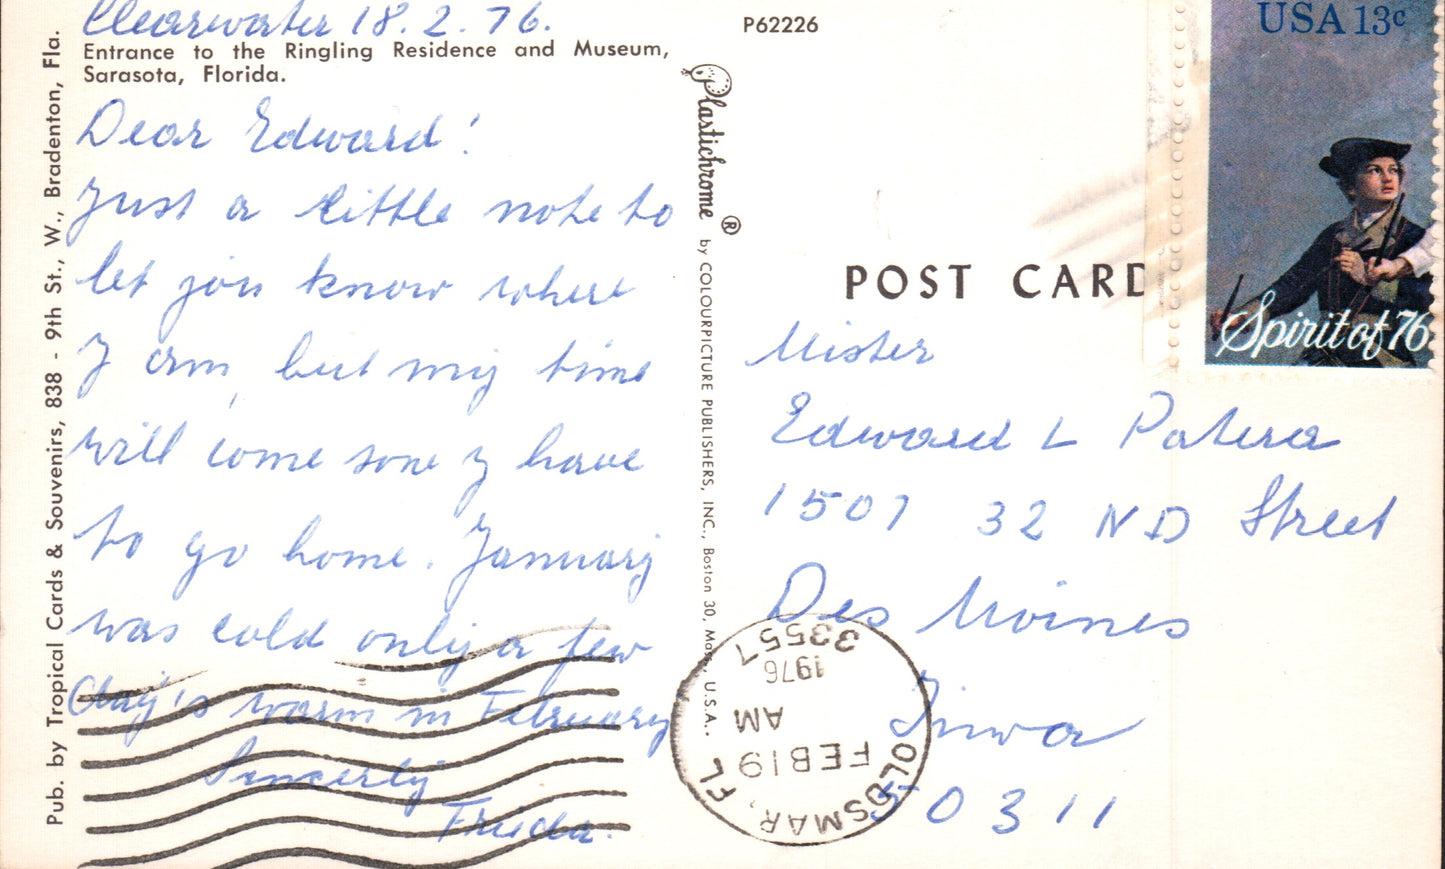 Clearwater 18.2.76.
Entrance to the Ringling Residence and Museum,
Sarasota, Florida.
Dear Edward!
Just a little note to
let you know where
I am, but my time
will come sone I have
to go home. January
was cold only a few
day's warm in February
Sincerly
Frieda.
Pub. by Tropical Cards & Souvenirs, 838 - 9th St., W., Bradenton, Fla.
Plastichrome ® by COLOURPICTURE PUBLISHERS, INC., Boston 30, Mass., U.S.A.
P62226
POST CARD
USA 13c
Spirit of 76
Mister
Edward L Patera
1507 32 ND Street
Des Moines
Iowa
50311
OLDSMAR, FL
FEB 19
AM
1976
33557